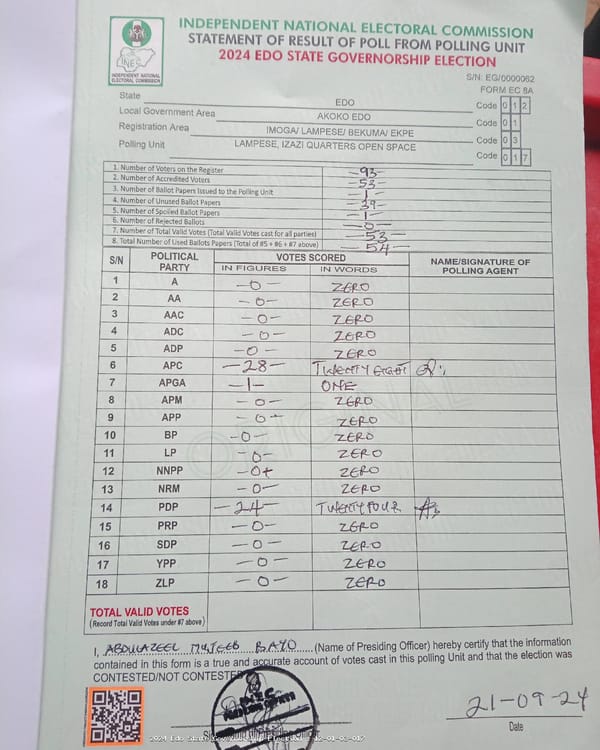 INDEPENDENT NATIONAL ELECTORAL COMMISSION
STATEMENT OF RESULT OF POLL FROM POLLING UNIT
2024 EDO STATE GOVERNORSHIP ELECTION
INEC
INDEPENDENT NATIONAL
ELECTORAL COMMISSION
S/N: EG/0000062
FORM EC 8A
State EDO Code 0 1 2
Local Government Area AKOKO EDO Code 0 1
Registration Area IMOGA/ LAMPESE/ BEKUMA/ EKPE Code 0 3
Polling Unit LAMPESE, IZAZI QUARTERS OPEN SPACE Code 0 1 7
1. Number of Voters on the Register -93-
2. Number of Accredited Voters -53-
3. Number of Ballot Papers Issued to the Polling Unit -1-
4. Number of Unused Ballot Papers -39-
5. Number of Spoiled Ballot Papers -1-
6. Number of Rejected Ballots -0-
7. Number of Total Valid Votes (Total Valid Votes cast for all parties) -53-
8. Total Number of Used Ballots Papers (Total of #5 + #6 + #7 above) -54-
S/N POLITICAL PARTY VOTES SCORED NAME/SIGNATURE OF POLLING AGENT
IN FIGURES IN WORDS
1 A -0- ZERO
2 AA -0- ZERO
3 AAC -0- ZERO
4 ADC -0- ZERO
5 ADP -0- ZERO
6 APC -28- TWENTY EIGHT
7 APGA -1- ONE
8 APM -0- ZERO
9 APP -0- ZERO
10 BP -0- ZERO
11 LP -0- ZERO
12 NNPP -0- ZERO
13 NRM -0- ZERO
14 PDP -24- TWENTY FOUR
15 PRP -0- ZERO
16 SDP -0- ZERO
17 YPP -0- ZERO
18 ZLP -0- ZERO
ORIGINAL
TOTAL VALID VOTES
(Record Total Valid Votes under #7 above)
I, ABDULAZEEL MUJEEB BAYO (Name of Presiding Officer) hereby certify that the information
contained in this form is a true and accurate account of votes cast in this polling Unit and that the election was
CONTESTED/NOT CONTESTED
INEC
21-09-24
Date